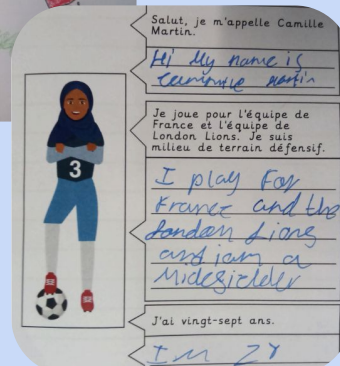 Salut, je m'appelle Camille
Martin.
Hi My name is
martin
Je joue pour l'équipe de
France et l'équipe de
London Lions. Je suis
milieu de terrain défensif.
I play For
France and the
London Lions
and iam a
3
J'ai vingt-sept ans.
I'm 27